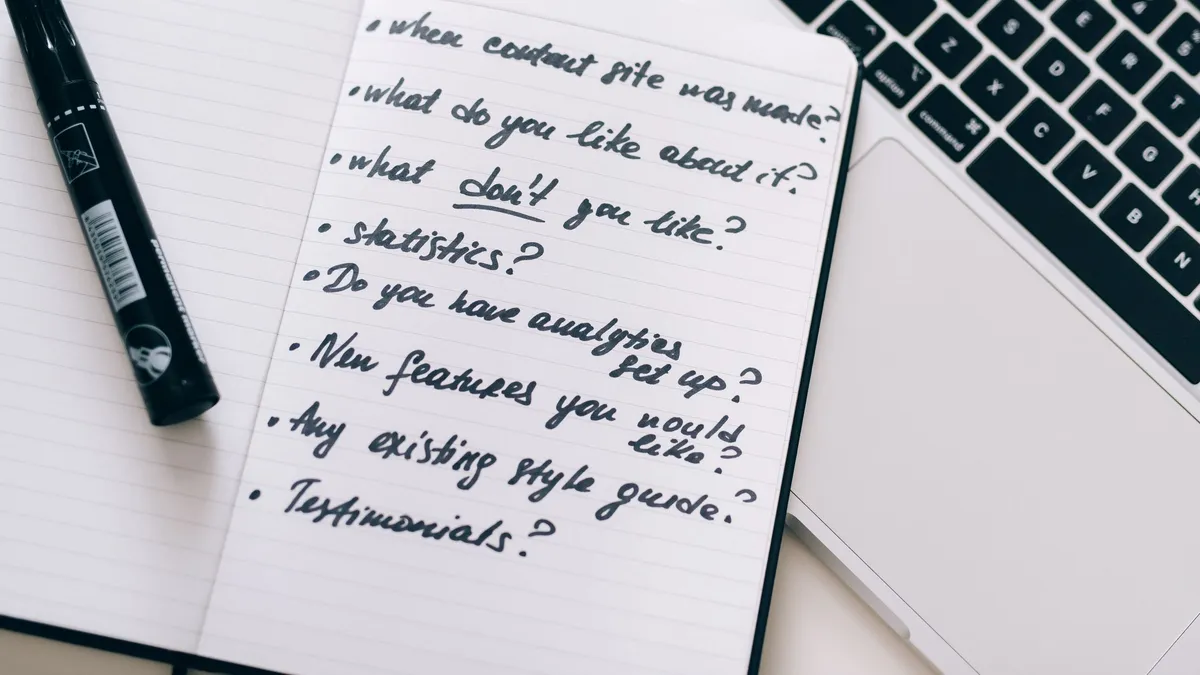 • when content site was made?
• what do you like about it?
• what don't you like?
• statistics?
• Do you have analytics
set up?
• New features you would
like?
• Any existing style guide?
• Testimonials?
permanent marker
4
E
R
S
D
T
Z
F
G
X
C
V
H
B
N
option
command ⌘